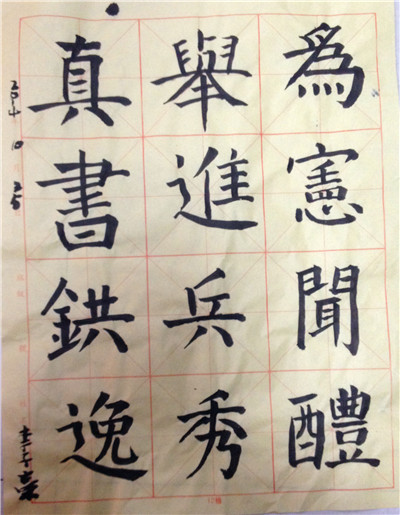 為憲聞醴
舉進兵秀
真書鉷逸
2014 10 25